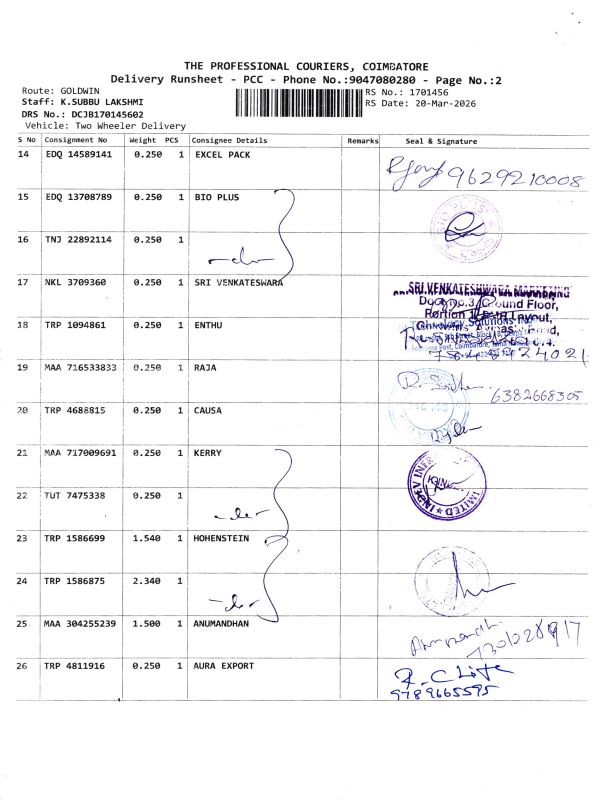 THE PROFESSIONAL COURIERS, COIMBATORE
Delivery Runsheet - PCC - Phone No.:9047080280 - Page No.:2
Route: GOLDWIN
RS No.: 1701456
Staff: K.SUBBU LAKSHMI
RS Date: 20-Mar-2026
DRS No.: DCJB170145602
Vehicle: Two Wheeler Delivery
S No Consignment No Weight PCS Consignee Details Remarks Seal & Signature
14 EDQ 14589141 0.250 1 EXCEL PACK
9629210008
15 EDQ 13708789 0.250 1 BIO PLUS
16 TNJ 22892114 0.250 1
17 NKL 3709360 0.250 1 SRI VENKATESWARA
SRI.VENKATESHWARA MARKETING
Door no.3, Ground Floor,
18 TRP 1094861 0.250 1 ENTHU
19 MAA 716533833 0.250 1 RAJA
6382668305
20 TRP 4688815 0.250 1 CAUSA
21 MAA 717009691 0.250 1 KERRY
22 TUT 7475338 0.250 1
23 TRP 1586699 1.540 1 HOHENSTEIN
24 TRP 1586875 2.340 1
25 MAA 304255239 1.500 1 ANUMANDHAN
26 TRP 4811916 0.250 1 AURA EXPORT
9789665595